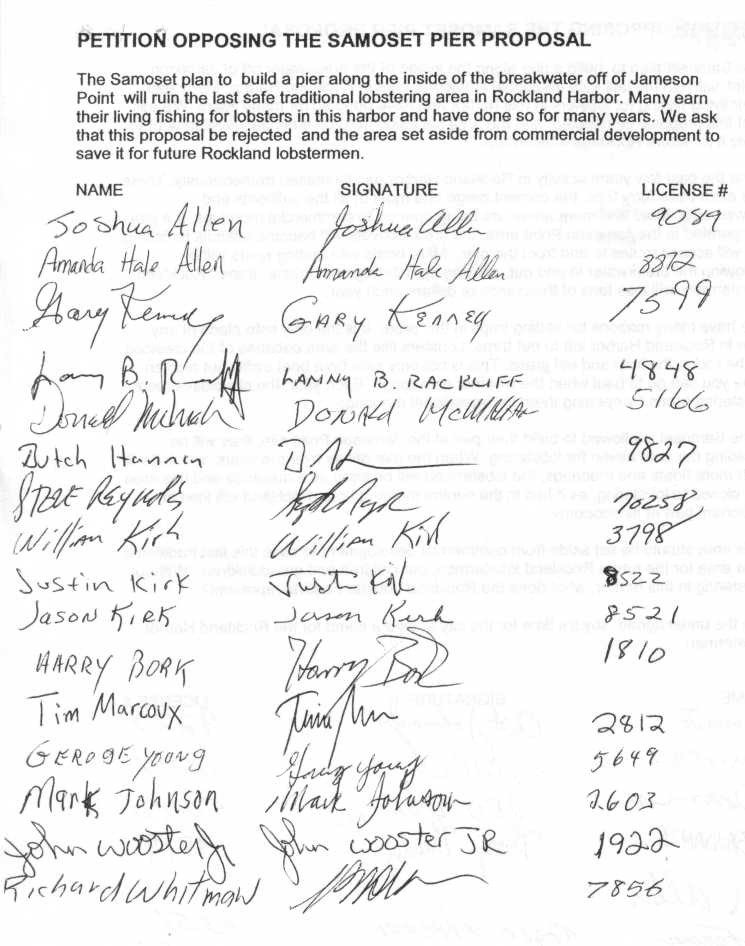 PETITION OPPOSING THE SAMOSET PIER PROPOSAL
The Samoset plan to build a pier along the inside of the breakwater off of Jameson
Point will ruin the last safe traditional lobstering area in Rockland Harbor. Many earn
their living fishing for lobsters in this harbor and have done so for many years. We ask
that this proposal be rejected and the area set aside from commercial development to
save it for future Rockland lobstermen.
NAME SIGNATURE LICENSE #
Joshua Allen Joshua Allen 9089
Amanda Hale Allen Amanda Hale Allen 3872
Gary Kenney GARY KENNEY 7599
Lanny B. LANNY B. RACKLIFF 4848
Donald DONALD McMahan 5166
Butch Hannan 9827
STEVE Reynolds 10258
William Kirk William Kirk 3798
Justin Kirk Justin Kirk 8522
Jason Kirk Jason Kirk 8521
HARRY BORK Harry Bork 1810
Tim Marcoux Tim 2812
GEROGE YOUNG George Young 5649
Mark Johnson Mark Johnson 2603
John Wooster Jr John WOOSTER JR 1922
Richard Whitman 7856